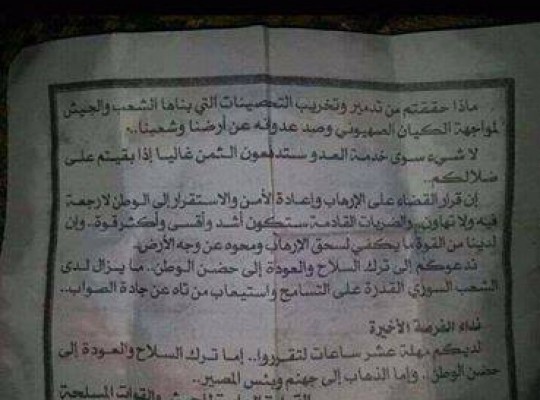 ماذا حققتم من تدمير وتخريب التحصينات التي بناها الشعب والجيش
لمواجهة الكيان الصهيوني وصد عدوانه عن أرضنا وشعبنا..
لا شيء سوى خدمة العدو ستدفعون الثمن غاليا إذا بقيتم على
ضلالكم..
إن قرار القضاء على الإرهاب وإعادة الأمن والاستقرار إلى الوطن لارجعة
فيه ولا تهاون.. والضربات القادمة ستكون أشد وأقسى وأكثر قوة.. وإن
لدينا من القوة ما يكفي لسحق الإرهاب ومحوه عن وجه الأرض.
ندعوكم إلى ترك السلاح والعودة إلى حضن الوطن.. ما يزال لدى
الشعب السوري القدرة على التسامح واستيعاب من تاه عن جادة الصواب..
نداء الفرصة الأخيرة
لديكم مهلة عشر ساعات لتقرروا.. إما ترك السلاح والعودة إلى
حضن الوطن.. وإما الذهاب إلى جهنم وبئس المصير..
القيادة العامة للجيش والقوات المسلحة